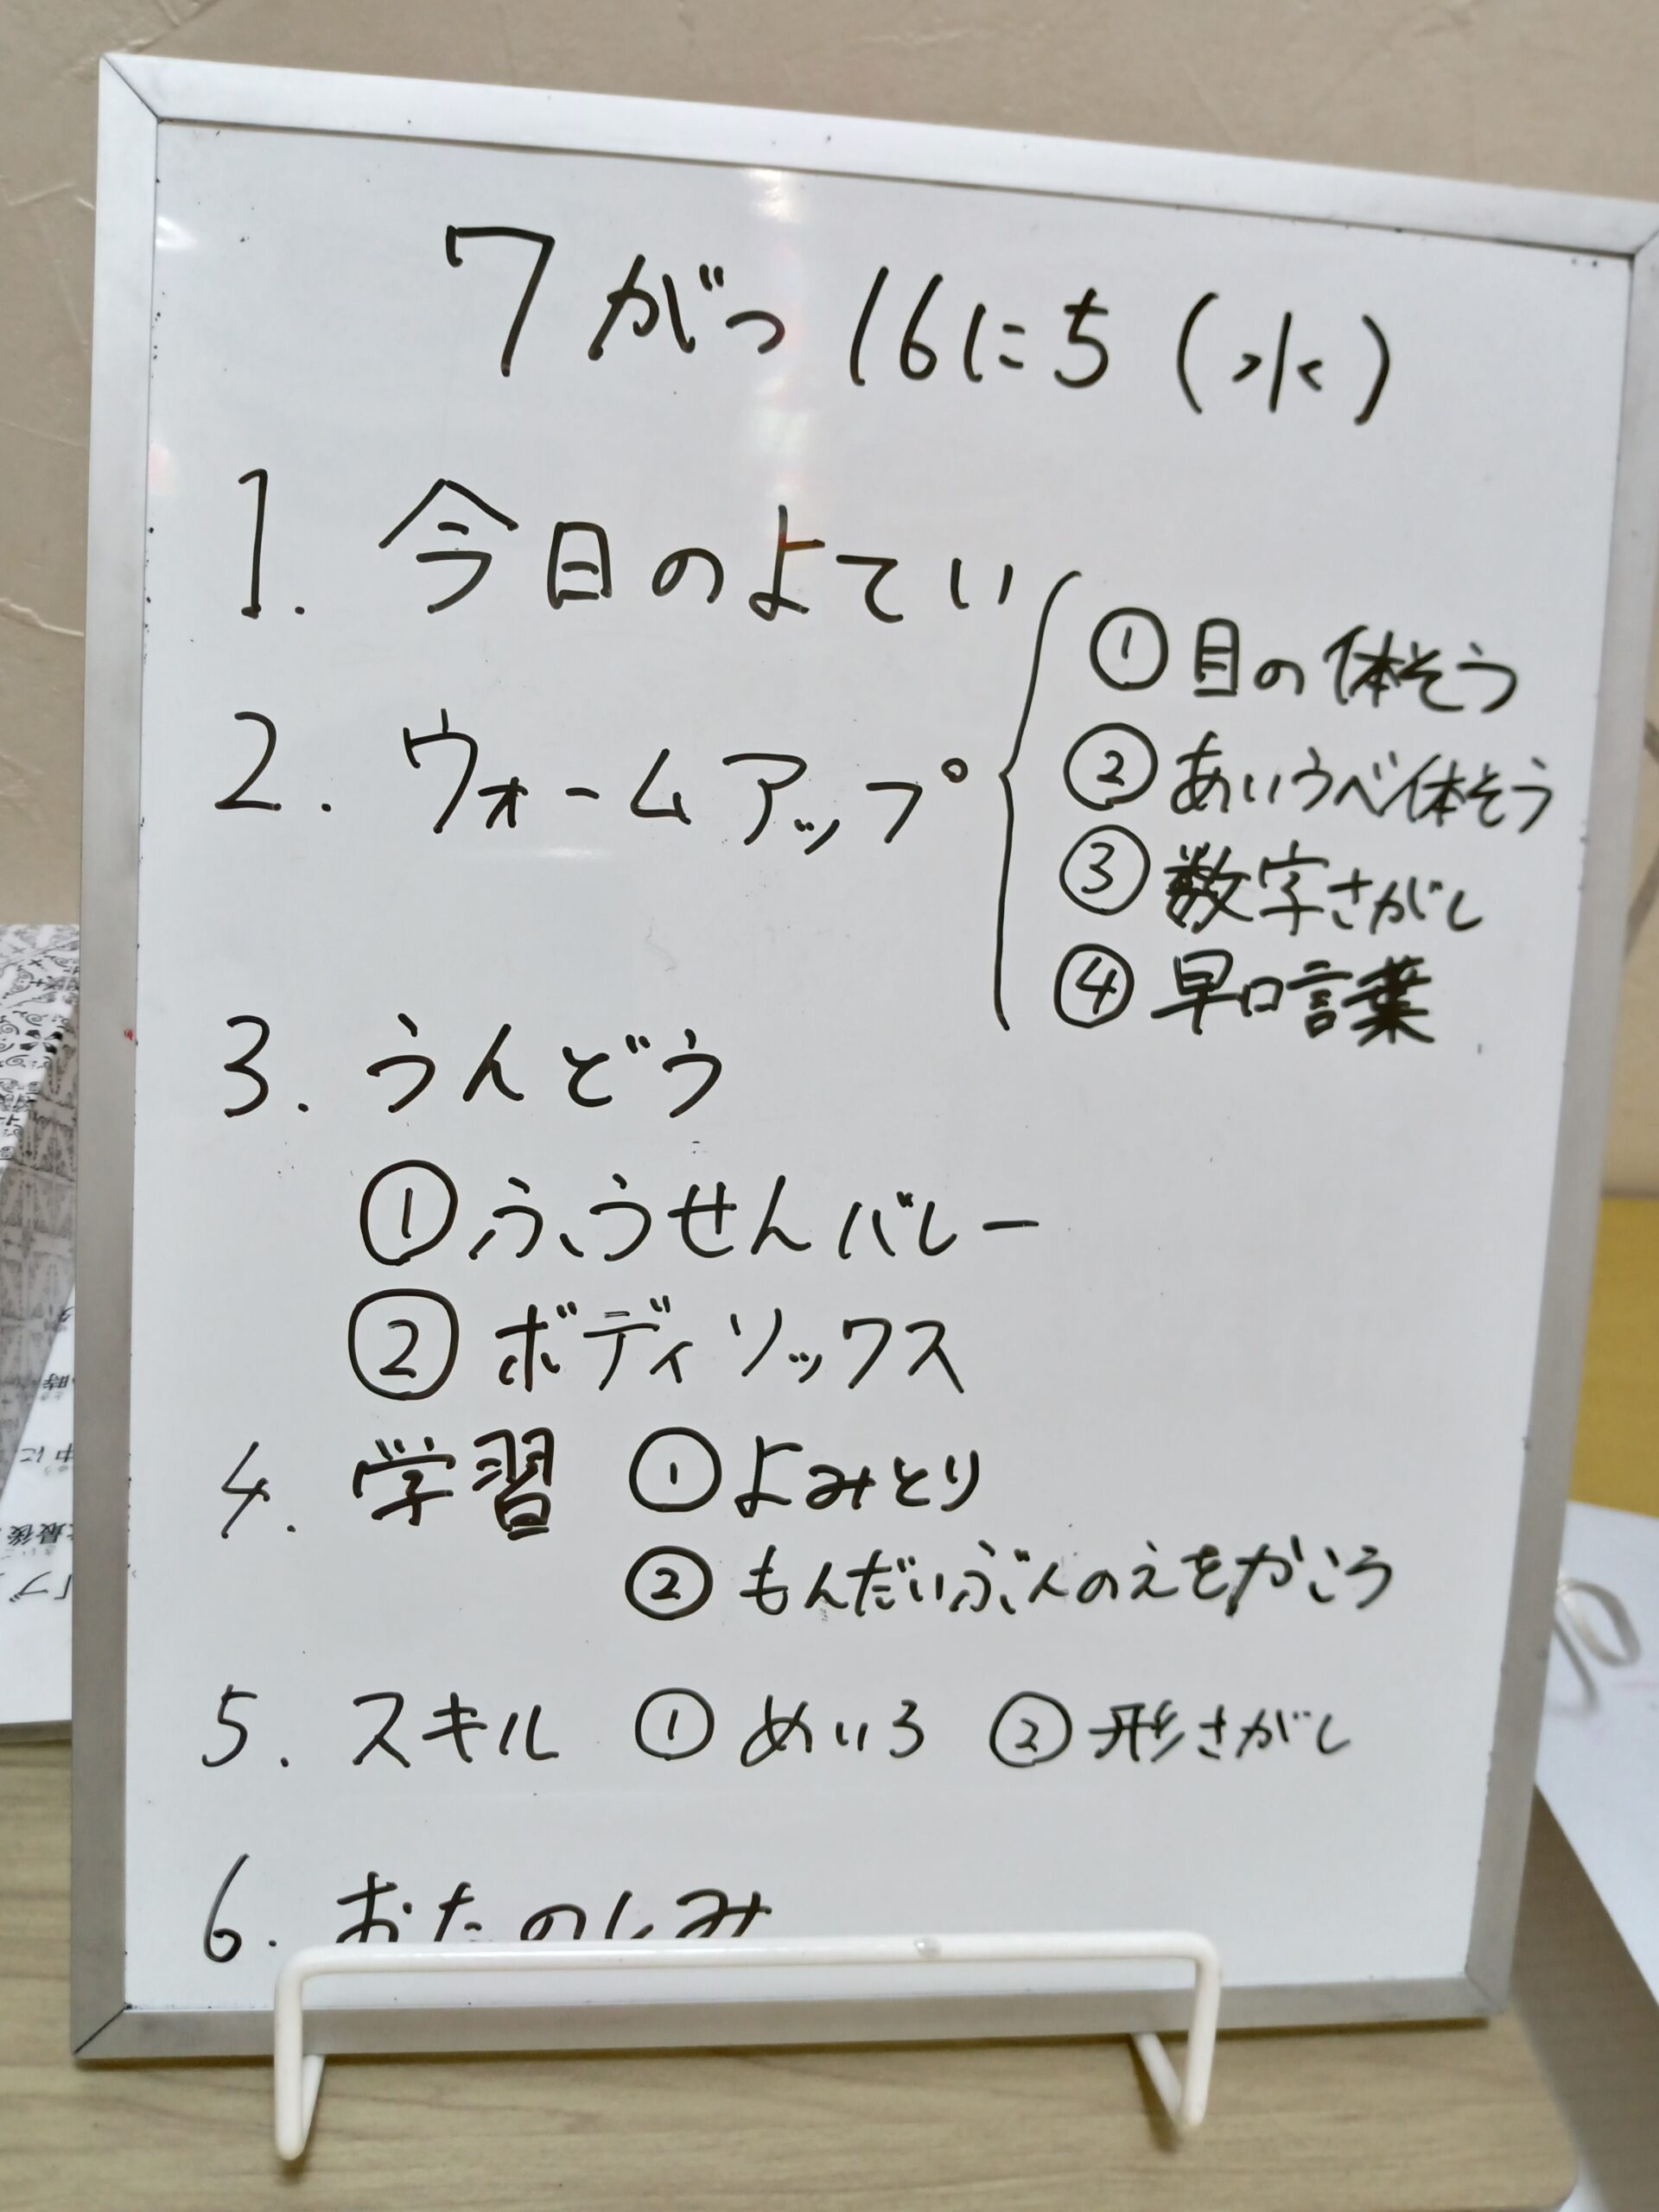 7がつ16にち(水)
1. 今日のよてい
2. ウォームアップ
①目の体そう
②あいうべ体そう
③数字さがし
④早口言葉
3. うんどう
①ふうせんバレー
②ボディソックス
4. 学習 ①よみとり
②もんだいぶんのえをかこう
5. スキル ①めいろ ②形さがし
6. おたのしみ